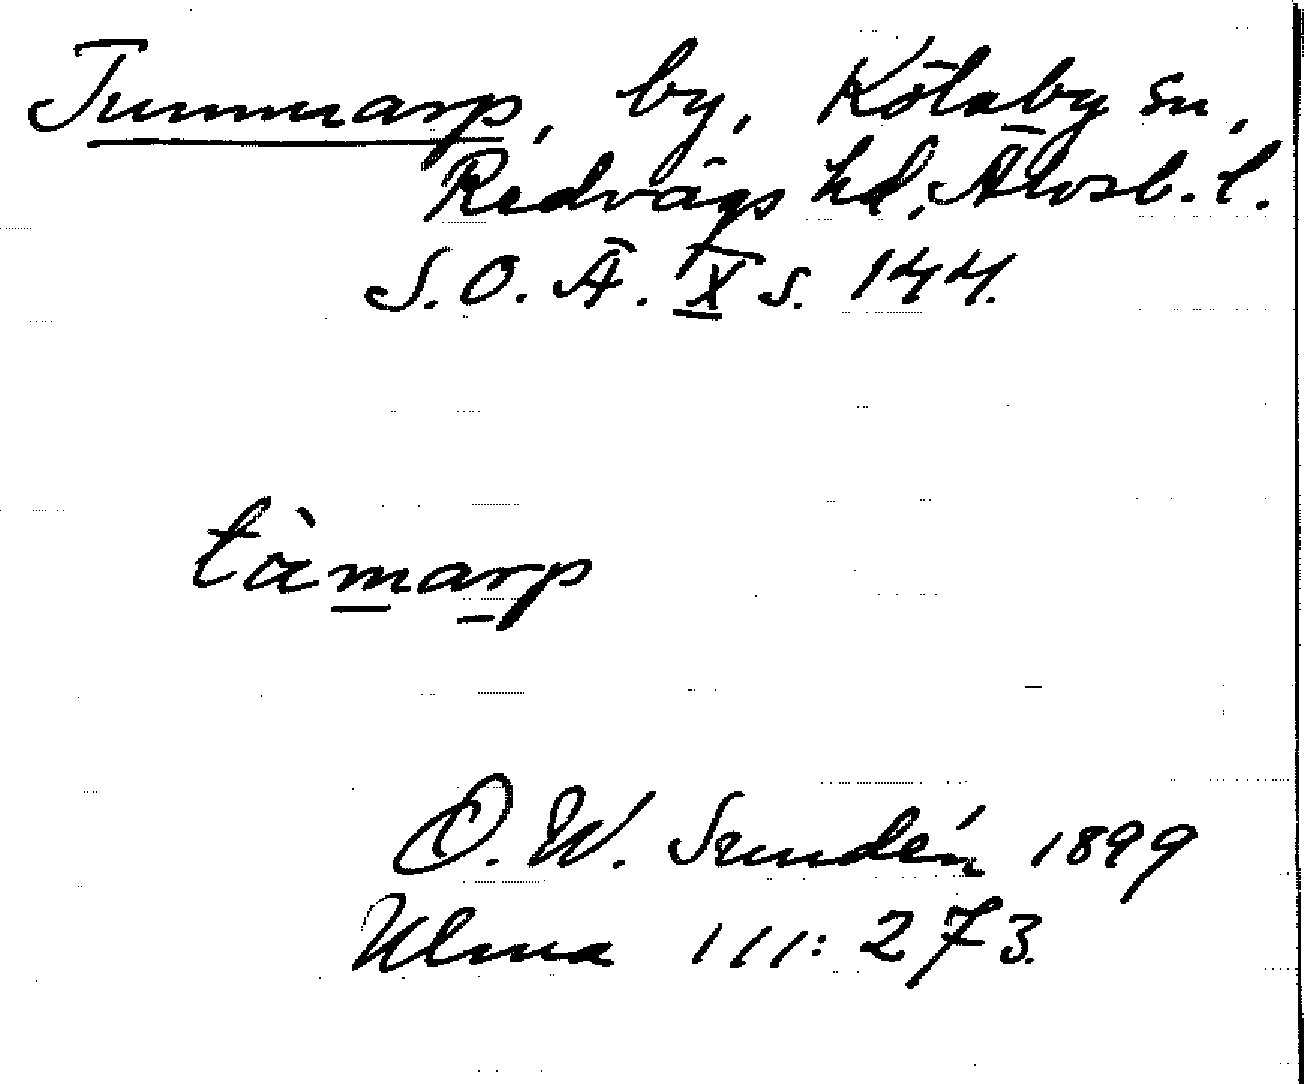 Tummarp, by, Kölaby sn,
Redvägs hd, Älvsb. l.
S. O. Ä. X s. 144.
tàmarp
O. W. Sundén 1899
Ulma 111:273.